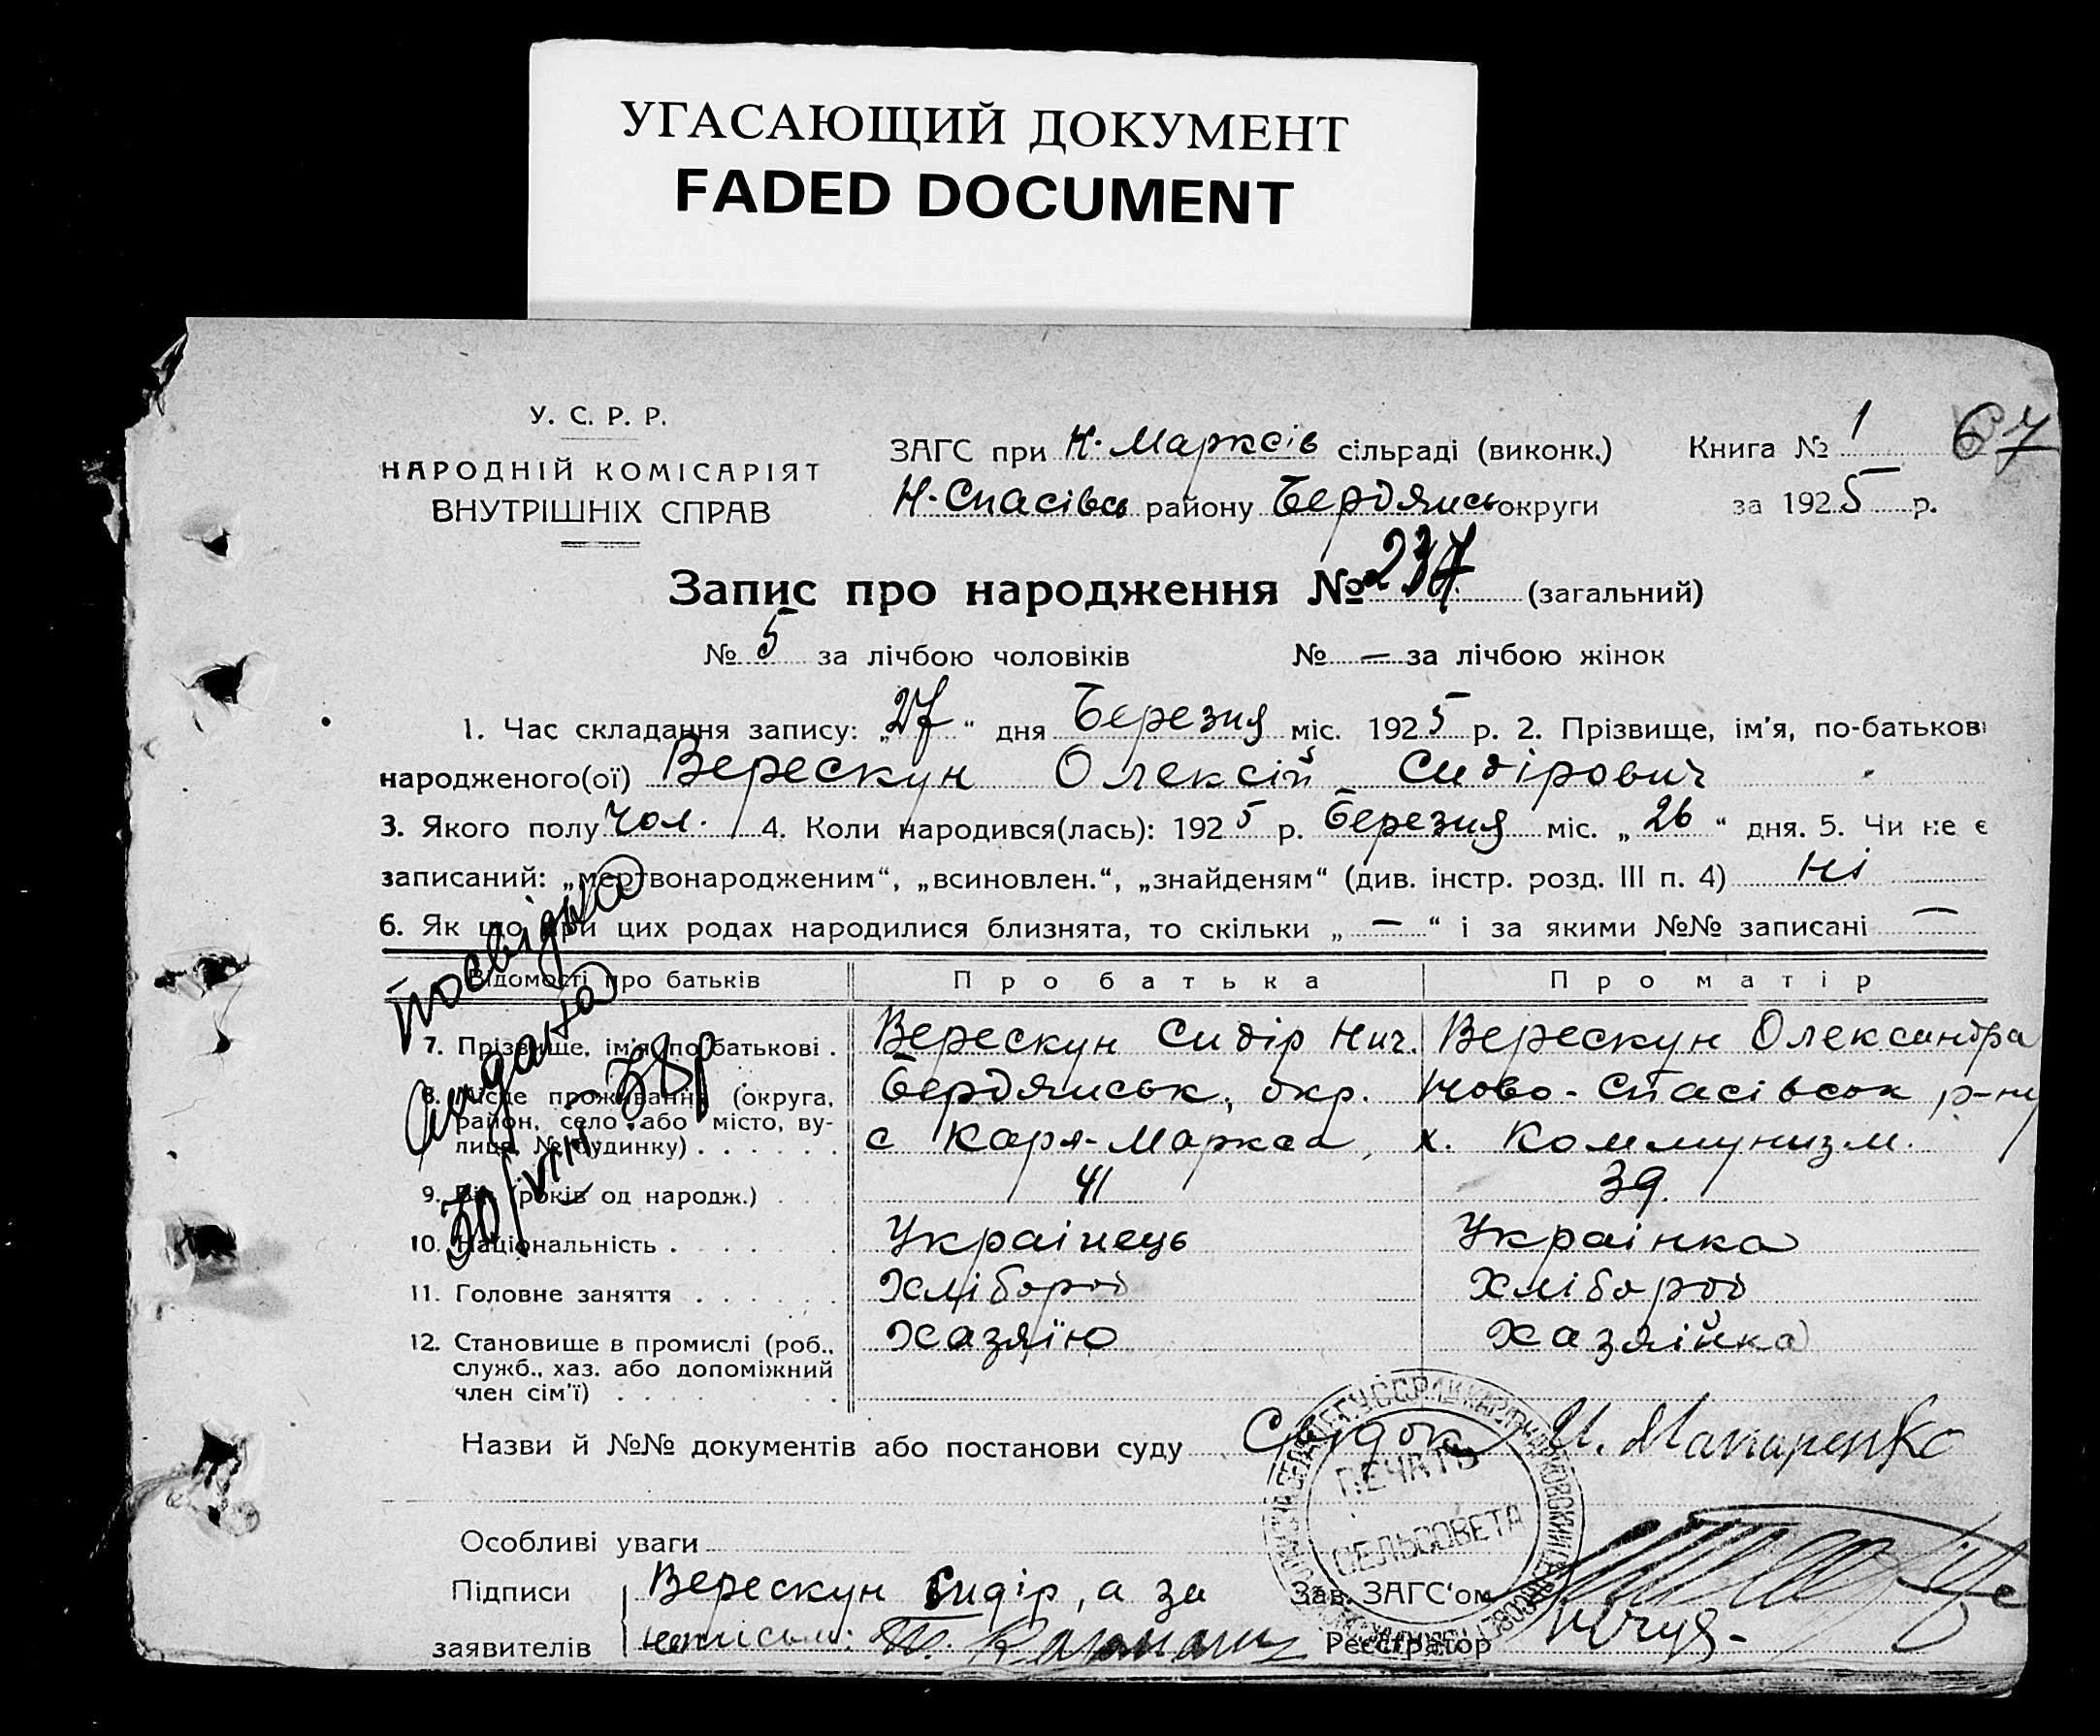 УГАСАЮЩИЙ ДОКУМЕНТ
FADED DOCUMENT
У. С. Р. Р.
НАРОДНІЙ КОМІСАРІЯТ
ВНУТРІШНІХ СПРАВ
ЗАГС при Н-Марксів сільраді (виконк.)
Н-Спасівсь району Бердянсь округи
Книга № 1
67
за 1925 р.
Запис про народження № 237 (загальний)
№ 5 за лічбою чоловіків № — за лічбою жінок
1. Час складання запису: „27“ дня Березня міс. 1925 р. 2. Прізвище, ім'я, по-батькові
народженого(ої) Верескун Олексій Сидірович
3. Якого полу чол. 4. Коли народився(лась): 1925 р. Березня міс. „26“ дня. 5. Чи не є
записаний: „мертвонародженим“, „всиновлен.“, „знайденям“ (див. інстр. розд. III п. 4) ні
6. Як що при цих родах народилися близнята, то скільки „—“ і за якими №№ записані —
Відомості про батьків Про батька Про матір
7. Прізвище, ім'я, по батькові . Верескун Сидір Нич. Верескун Олександра
8. Місце проживання (округа, Бердянськ, окр. Ново-Спасівсок р-ну
район, село або місто, ву-
лиця, № будинку) . . . . . . с Карл-Маркса, х. Коммунизм.
9. Вік (років од народж.) . . . 41 39.
10. Національність . . . . . . Украінець Украінка
11. Головне заняття . . . . . . Хлібороб Хлібороб
12. Становище в промислі (роб., Хазяїно Хазяінка
служб., хаз. або допоміжний
член сім'ї) . . . . . . .
Посвідка
видана
30/VIII 38р
Назви й №№ документів або постанови суду Свідок И. Макаренко
Особливі уваги
Підписи Верескун Сидір, а за Зав. ЗАГС'ом
заявителів Реєстратор
ПЕЧАТЬ
СЕЛЬСОВЕТА